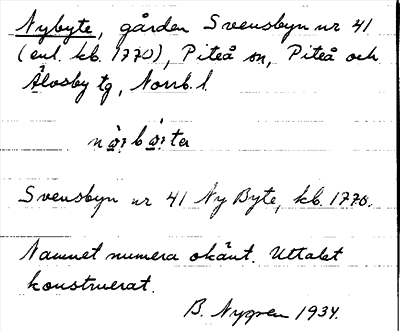 Nybyte, gården Svensbyn nr 41
(enl. kb. 1770), Piteå sn, Piteå och
Älvsby tg, Norrb. l.
Svensbyn nr 41 Ny Byte, kb. 1770.
Namnet numera okänt. Uttalet
konstruerat.
B. Nygren 1934.